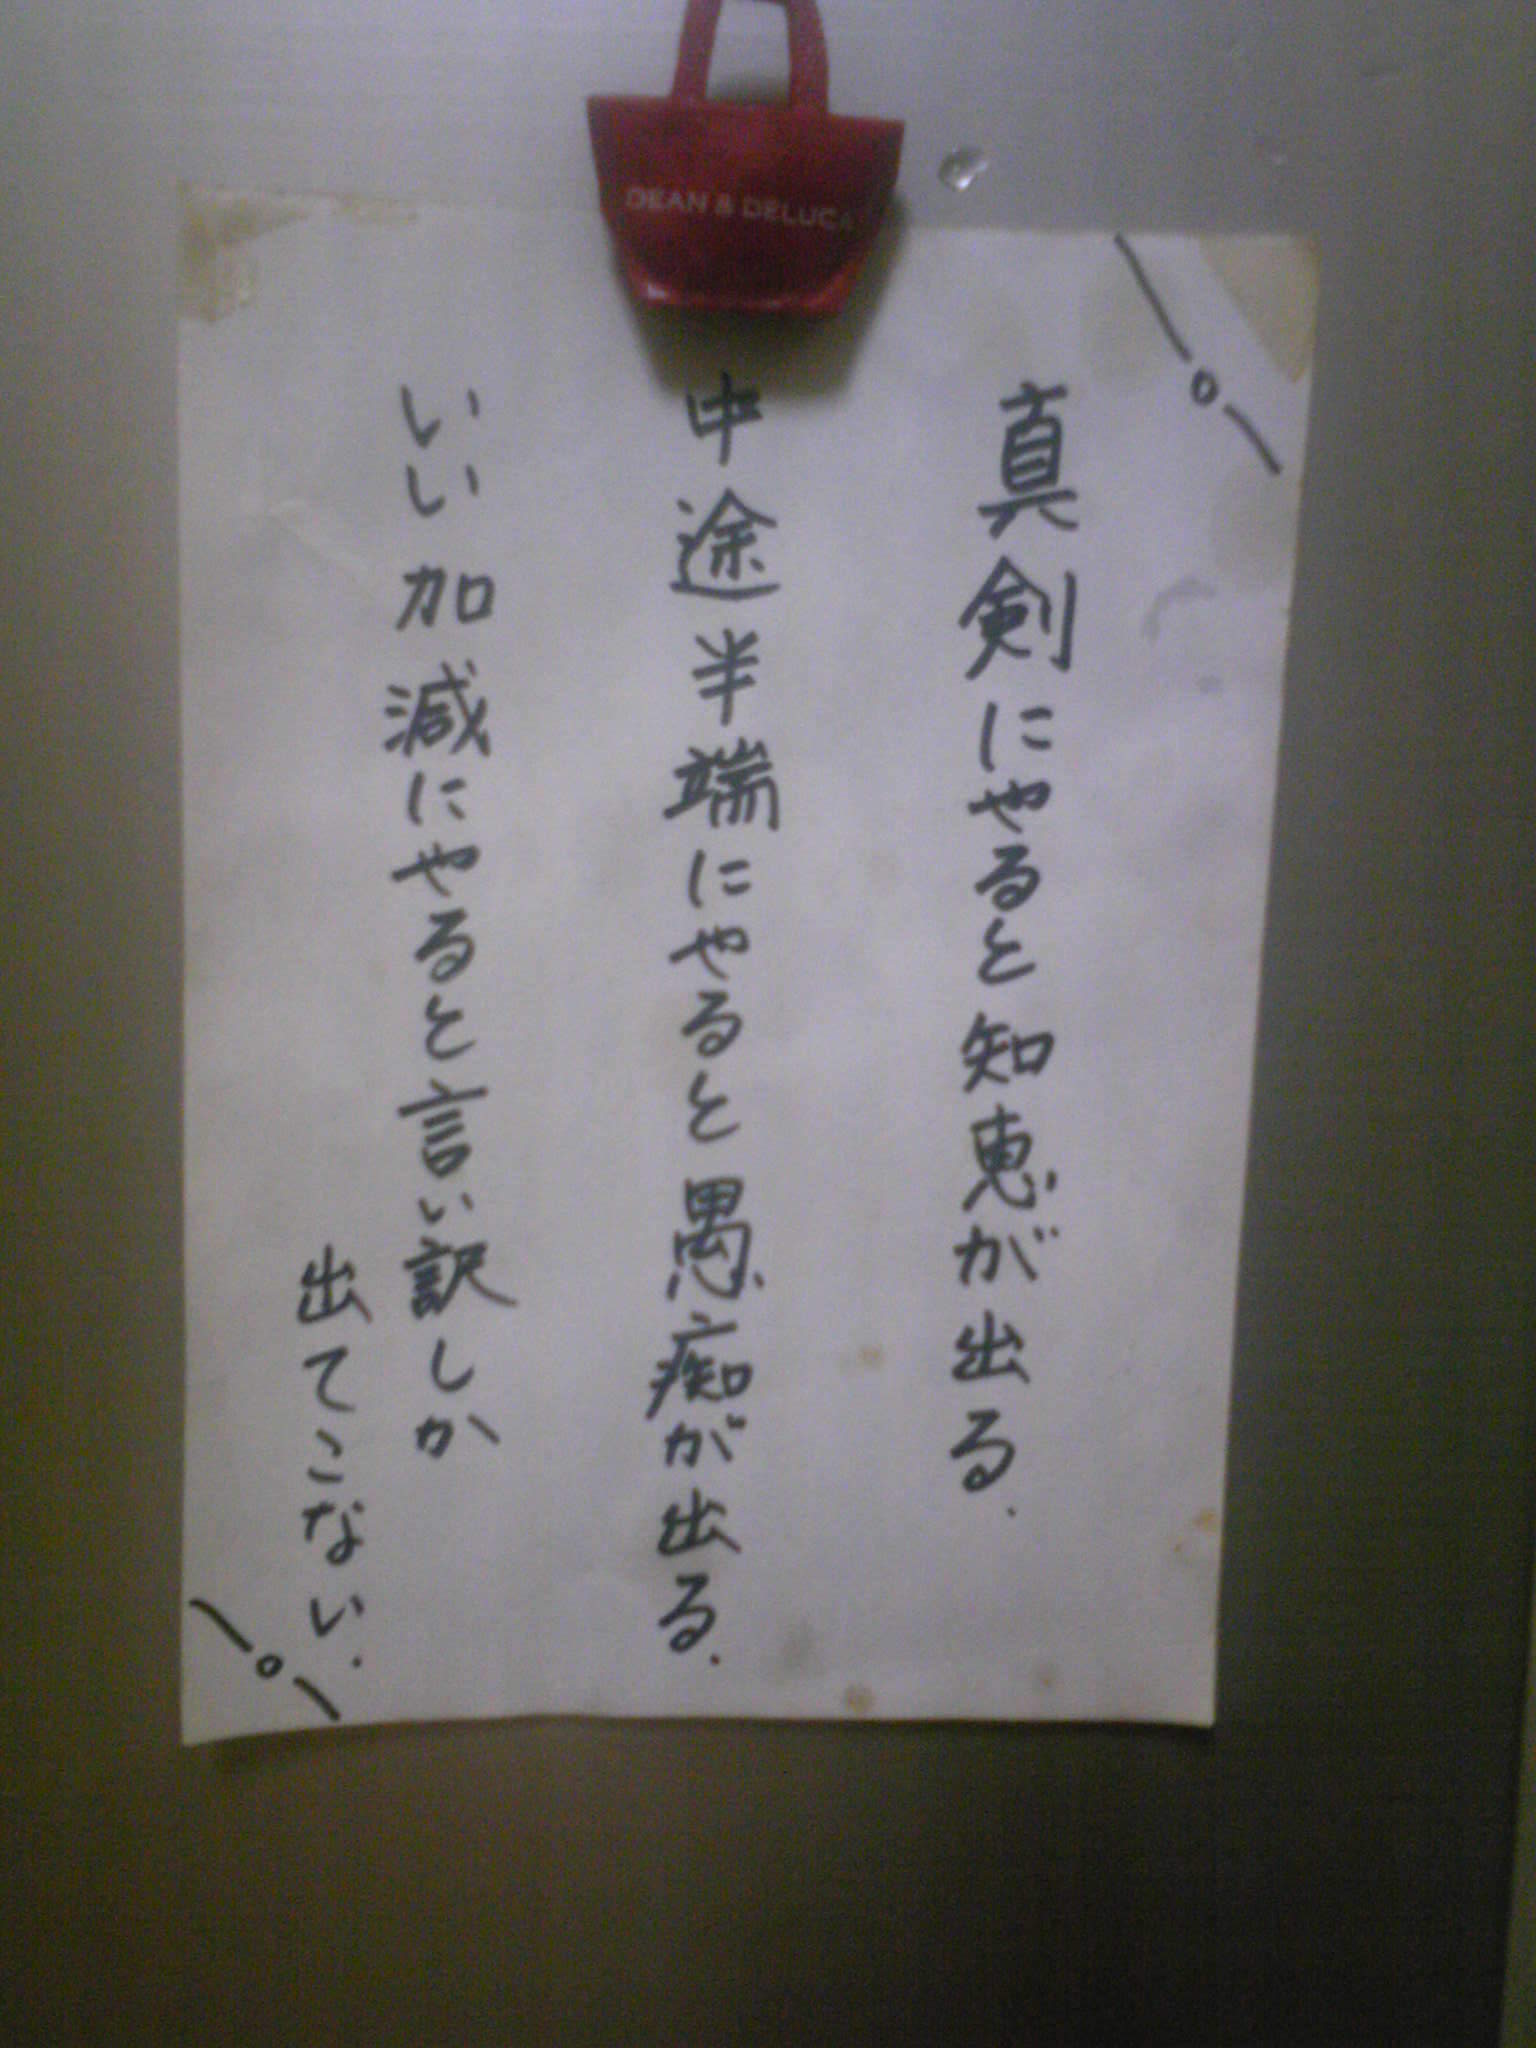 DEAN & DELUCA
真剣にやると知恵が出る.
中途半端にやると愚痴が出る.
いい加減にやると言い訳しか
出てこない.